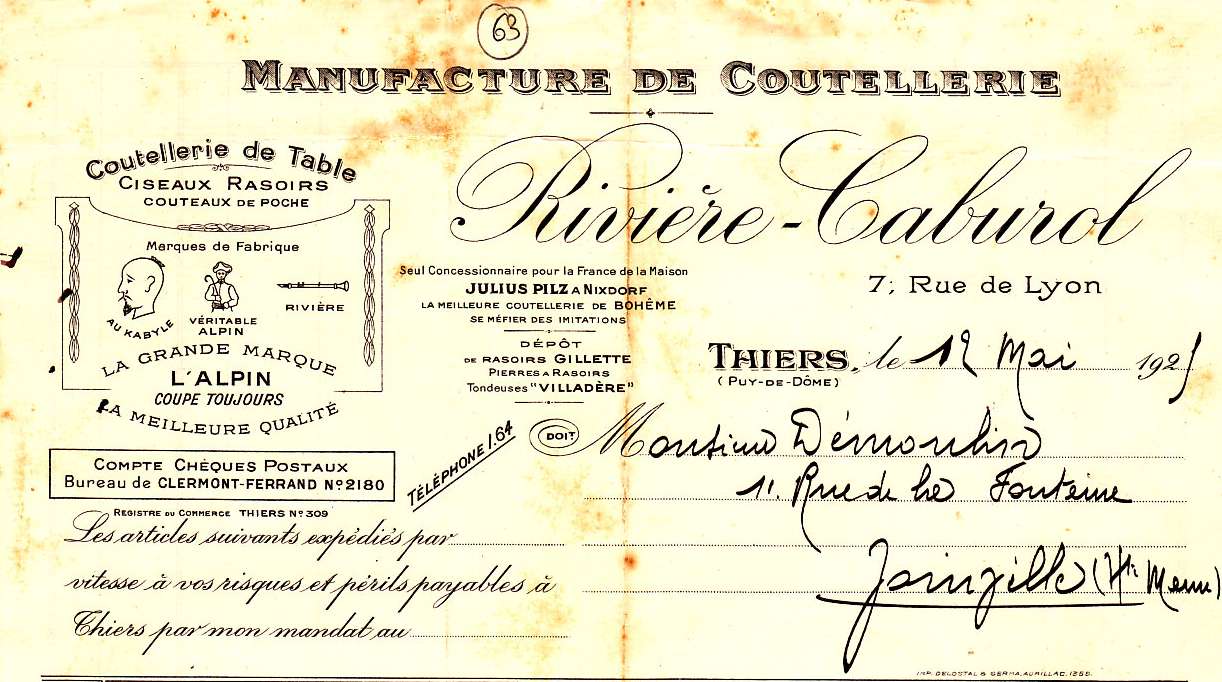 63
MANUFACTURE DE COUTELLERIE
Rivière-Caburol
7; Rue de Lyon
Coutellerie de Table
CISEAUX RASOIRS
COUTEAUX DE POCHE
Marques de Fabrique
AU KABYLE
VÉRITABLE
ALPIN
RIVIÈRE
LA GRANDE MARQUE
L'ALPIN
COUPE TOUJOURS
LA MEILLEURE QUALITÉ
COMPTE CHÈQUES POSTAUX
Bureau de CLERMONT-FERRAND Nº2180
REGISTRE DU COMMERCE THIERS Nº 309
Seul Concessionnaire pour la France de la Maison
JULIUS PILZ A NIXDORF
LA MEILLEURE COUTELLERIE DE BOHÊME
SE MÉFIER DES IMITATIONS
DÉPÔT
DE RASOIRS GILLETTE
PIERRES A RASOIRS
Tondeuses "VILLADÈRE"
TÉLÉPHONE 1.64
THIERS, le 12 Mai 1925
(PUY-DE-DÔME)
DOIT Monsieur Démoulin
1, Rue de la Fontaine
Joinville (Hte Marne)
Les articles suivants expédiés par
vitesse à vos risques et périls payables à
Thiers par mon mandat au
IMP. DELOSTAL & SERMA, AURILLAC.